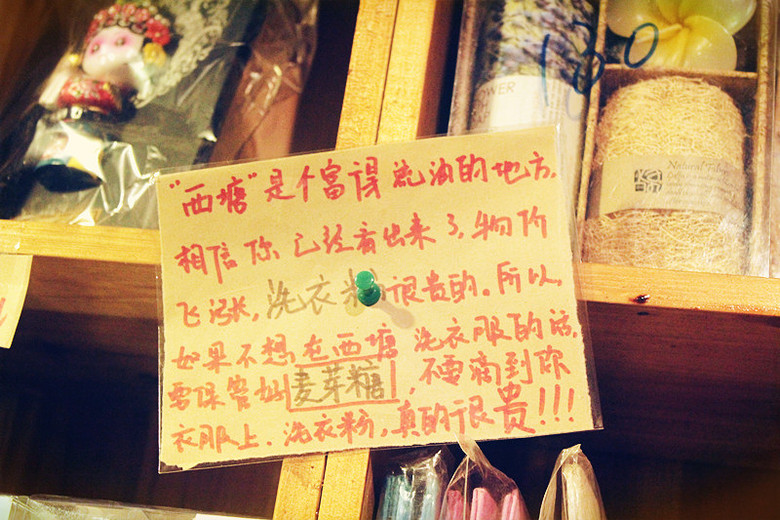 "西塘"是个富得流油的地方,
相信你已经看出来了,物价
飞涨,洗衣粉很贵的。所以,
如果不想在西塘洗衣服的话,
要保管好麦芽糖,不要滴到你
衣服上.洗衣粉,真的很贵!!!
100